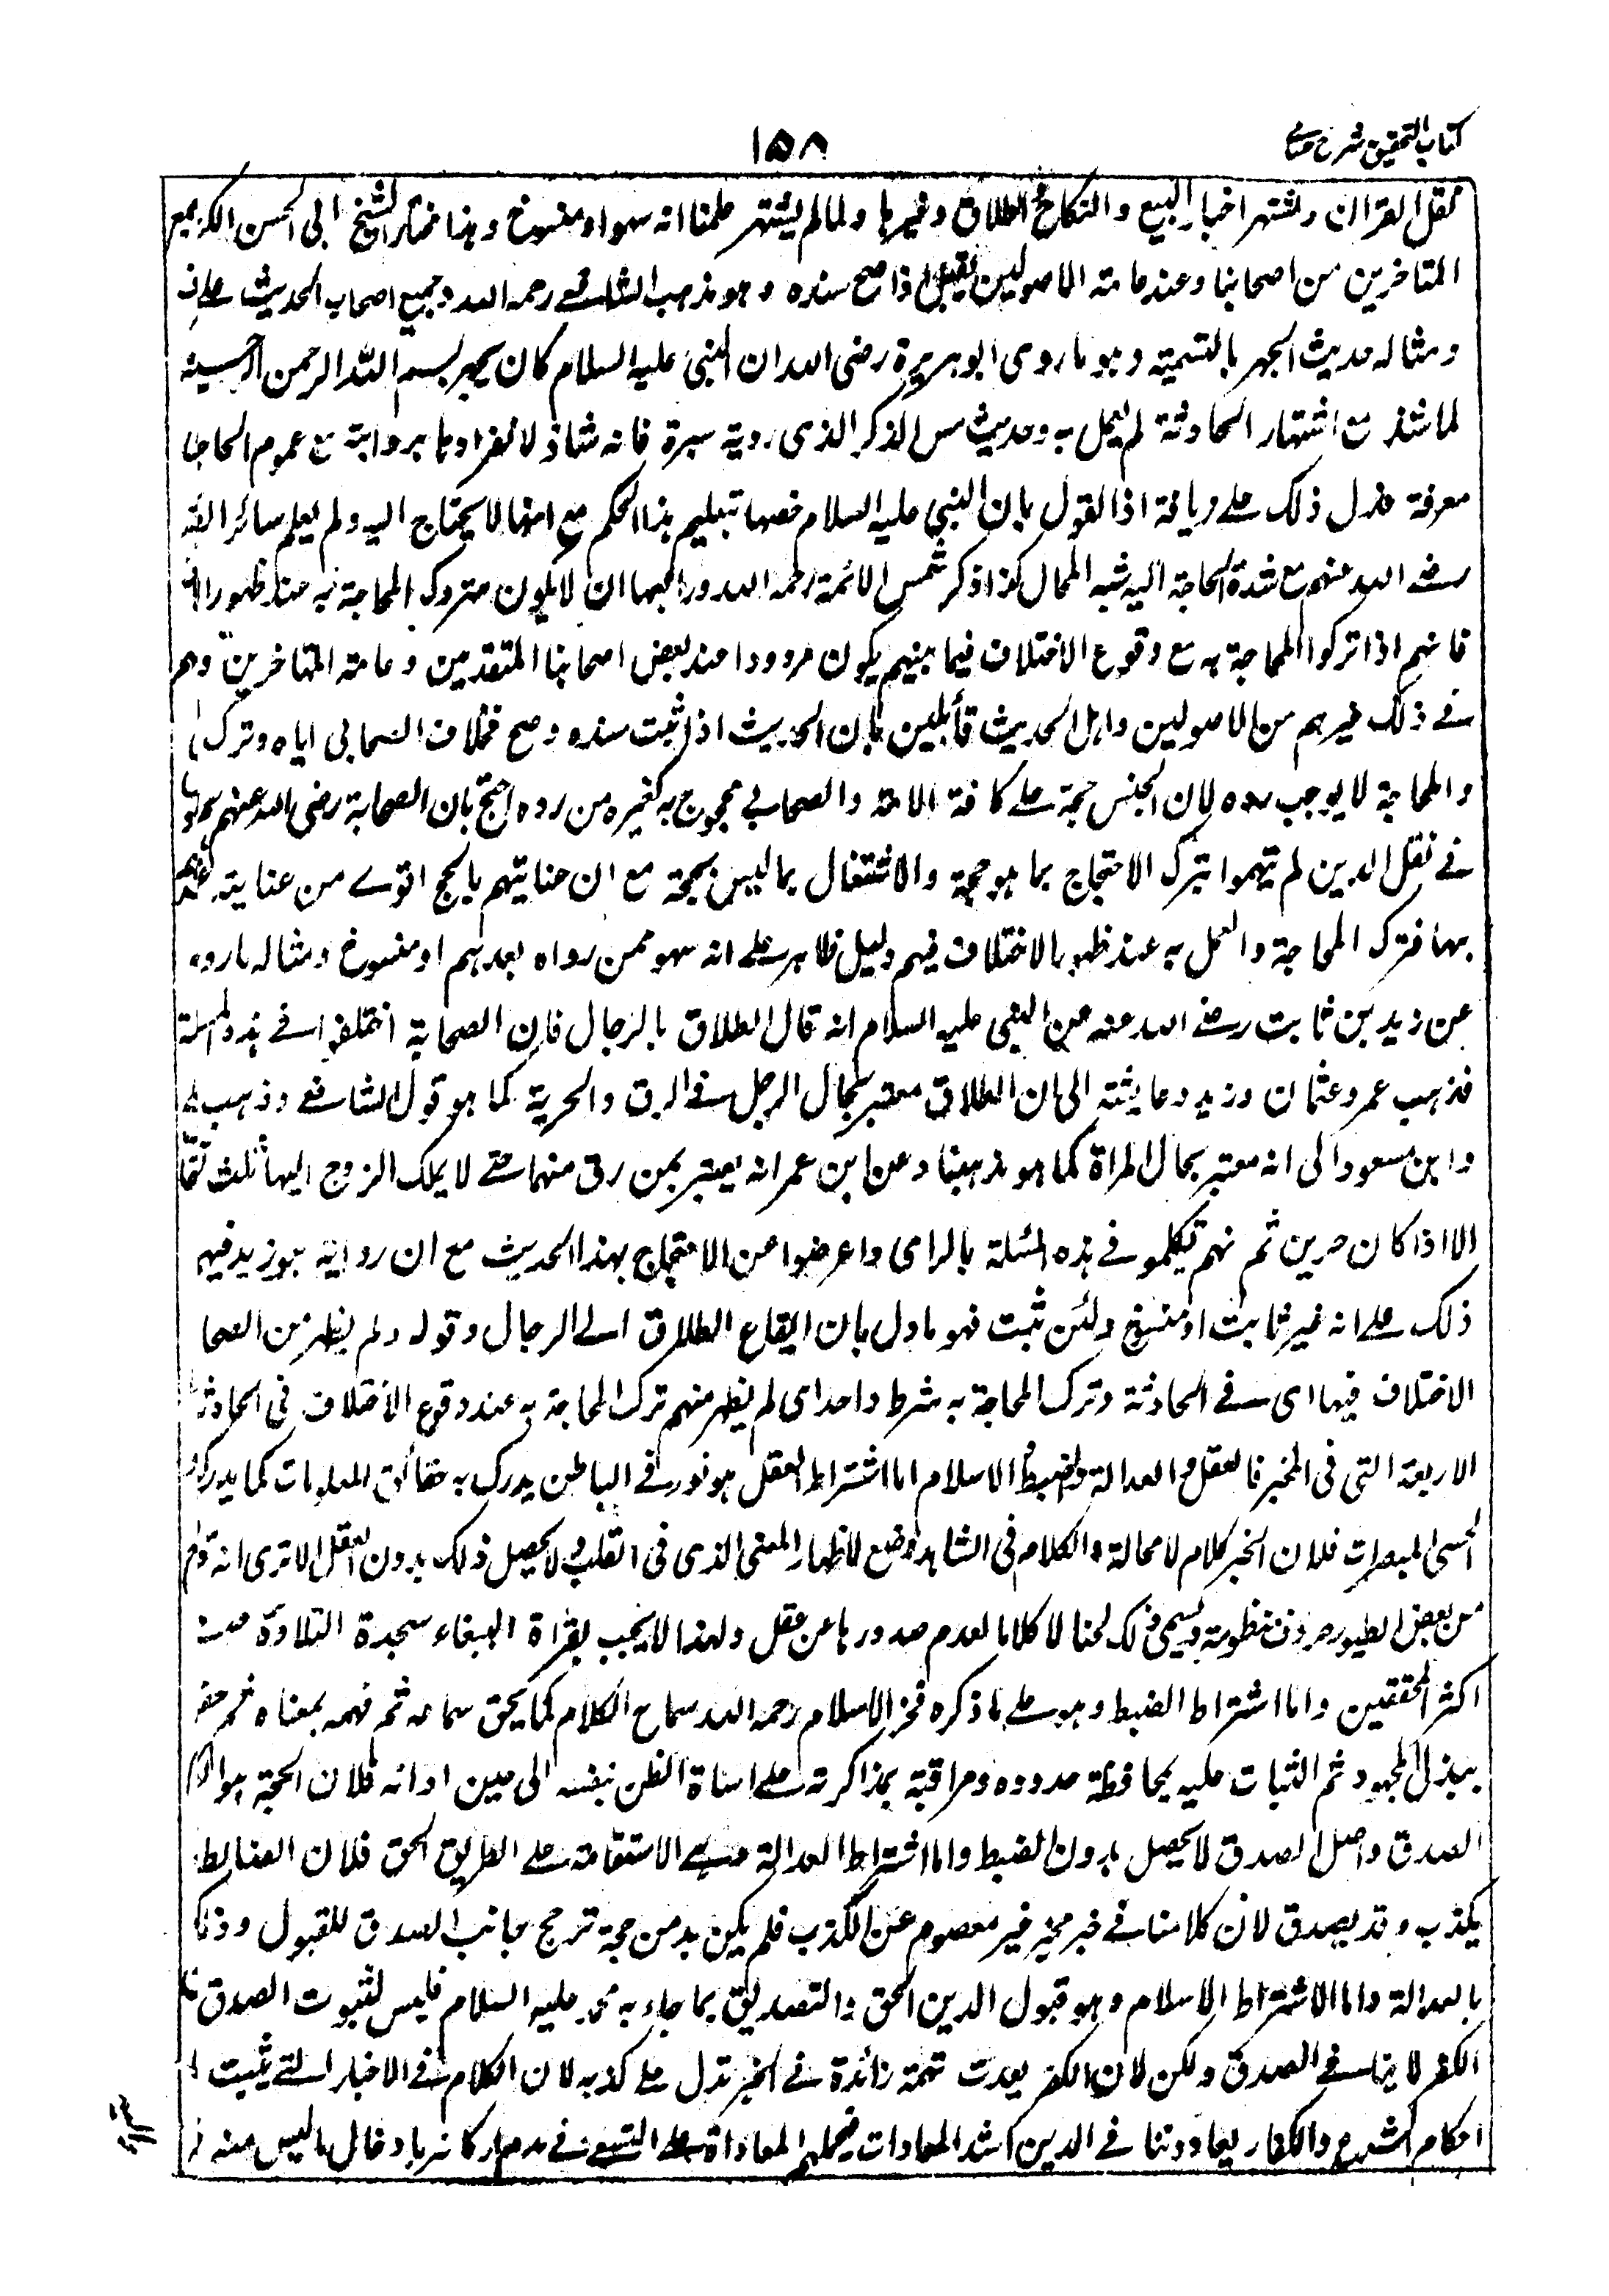 كتاب التحقيق شرح حسامي
١٥٨
نقل القران واشتهر اخبار البيع والنكاح والطلاق وغيرها ولما لم يشتهر علمنا انه سهوا ومنسوخ وهذا مختار الشيخ ابى الحسن الكرخي
المتاخرين من اصحابنا وعند عامة الاصوليين يقبل اذا صح سنده وهو مذهب الشافعي رحمه الله وجميع اصحاب الحديث
ومثاله حديث الجهر بالتسمية وهو ما روى ابو هريرة رضى الله ان النبى عليه السلام كان يجهر ببسم الله الرحمن
لما شذ مع اشتهار الحادثة لم يعمل به وحديث مس الذكر الذى روته بسرة فانه شاذ لانفرادها بروايته مع عموم الحاجة
معرفة فدل ذلك على زيافة اذ القول بان النبى عليه السلام خصها بتعليم هذا الحكم مع انها لا يحتاج اليه ولم يعلم سائر
رضے الله عنهم مع شدة الحاجة اليه شبه المحال كذا ذكر شمس الائمة رحمه الله ورابعها ان لا يكون متروك المحاجة به عند ظهور
فانهم اذا تركوا المحاجة به مع وقوع الاختلاف فيما بينهم يكون مردودا عند بعض اصحابنا المتقدمين وعامة المتاخرين
فے ذلك غيرهم من الاصوليين واهل الحديث قائلين بان الحديث اذا ثبت سنده وصح فخلاف الصحابى اياه وترك
والمحاجة لا يوجب رده لان الجنس حجة على كافة الامة والصحابي محجوج به كغيره من رده احتج بان الصحابة رضى الله عنهم
فے نقل الدين لم يتهموا بترك الاحتجاج بما هو حجة والاشتغال بما ليس بحجة مع ان عنايتهم بالحج اقوے من عناية غيرهم
بها فترك المحاجة والعمل به عند ظهور الاختلاف فيهم دليل ظاهر على انه سهو ممن رواه بعدهم او منسوخ ومثاله ما روى
عن زيد بن ثابت رضے الله عنه عن النبى عليه السلام انه قال الطلاق بالرجال فان الصحابة اختلفوا فے هذه المسئلة
فذهب عمر وعثمان وزيد وعايشة الى ان الطلاق معتبر بحال الرجل فے الرق والحرية كما هو قول الشافعے وذهب
وابن مسعود الى انه معتبر بحال المراة كما هو مذهبنا وعن ابن عمر انه يعتبر بمن رق منهما حتے لا يملك الزوج اليها ثلث
الا اذا كان حرين ثم انهم تكلموا فے هذه المسئلة بالراى واعرضوا عن الاحتجاج بهذا الحديث مع ان روايه هو زيد فيهم
ذلك على انه غير ثابت او منسوخ ولئن ثبت فهو ماول بان ايقاع الطلاق الے الرجال وقوله ولم يظهر من الصحا
الاختلاف فيها اى فے الحادثة وترك المحاجة به شرط واحد اى لم يظهر منهم ترك المحاجة به عند وقوع الاختلاف فى الحادثة
الاربعة التى فى المخبر فالعقل والعدالة والضبط والاسلام اما اشتراط العقل هو نور فے الباطن يدرك به حقائق المعلومات كما يدرك
الحسى المبصرات فلان الخبر كلام لا محالة والكلام فى الشاهد وضع لاظهار المعنى الذى فى القلب ولا يحصل ذلك بدون العقل الا ترى انه
من بعض الطيور حروف منظومة ويسمى ذلك لحنا لا كلاما لعدم صدورها عن عقل ولهذا لا يجب بقراة الببغاء سجدة التلاوة عند
اكثر المحققين واما اشتراط الضبط وهو على ما ذكره فخر الاسلام رحمه الله سماع الكلام كما يحق سماعه ثم فهمه بمعناه ثم حفظه
ببذل المجهود ثم الثبات عليه بمحافظة حدوده ومراقبة بمذاكرته على اساءة الظن بنفسه الى حين ادائه فلان الحجة هو
الصدق واصل الصدق لا يحصل بدون الضبط واما اشتراط العدالة وهے الاستقامة على الطريق الحق فلان الضابط
يكذب وقد يصدق لان كلامنا فے خبر مخبر غير معصوم عن الكذب فلم يكن بد من حجة ترجح جانب الصدق للقبول وذلك
بالعدالة واما الاشتراط الاسلام وهو قبول الدين الحق والتصديق بما جاء به محمد عليه السلام فليس لثبوت الصدق
الكفر لا ينافے الصدق ولكن لان الكفر يورث تهمة زائدة فے الخبر تدل على كذبه لان الكلام فے الاخبار التے يثبت
احكام الشرع والكفار يعادوننا فے الدين اشد المعادات فيحملهم المعاداة على السعے فے هدم اركانه بادخال ما ليس منه